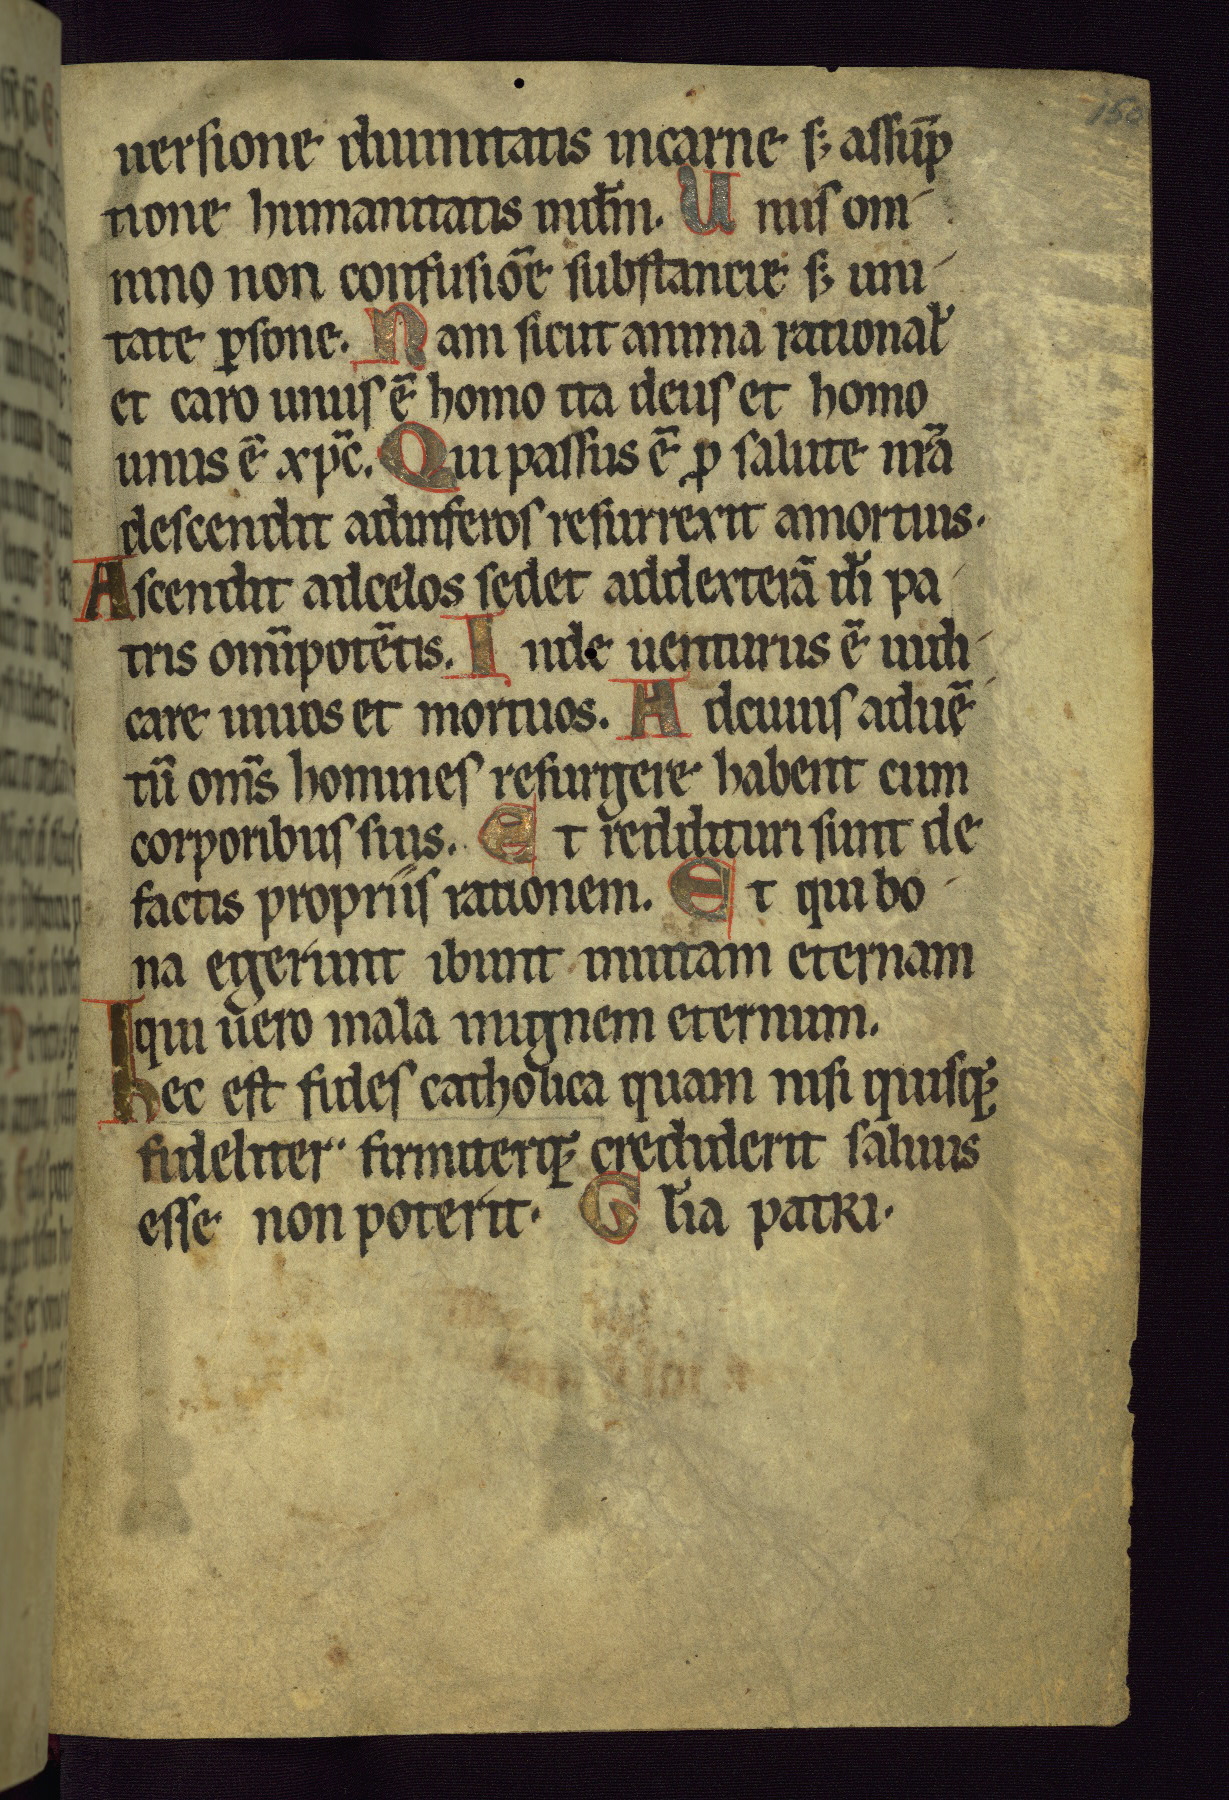 150
uersione diuinitatis incarne s; assūp
tione humanitatis indm̄. Unus om-
nino non confusiōe substancie s; uni-
tate ꝑsone. Nam sicut anima rational̓
et caro unus ē homo ita deus et homo
unus ē xp̄c. Qui passus ē ꝓ salute nrā
descendit adinferos resurrexit amortuis.
Ascendit adcelos sedet addexterā dī pa-
tris omīpotētis. Inde uenturus ē iudi-
care uiuos et mortuos. Adcuius aduē-
tū om̄s homines resurgere habent cum
corporibus suis. Et reddituri sunt de
factis propriis rationem. Et qui bo-
na egerunt ibunt inuitam eternam
qui uero mala inignem eternum.
Hec est fides catholica quam nisi quisqꝫ
fideliter firmiterqꝫ crediderit saluus
esse non poterit. Gl̓ia patri.